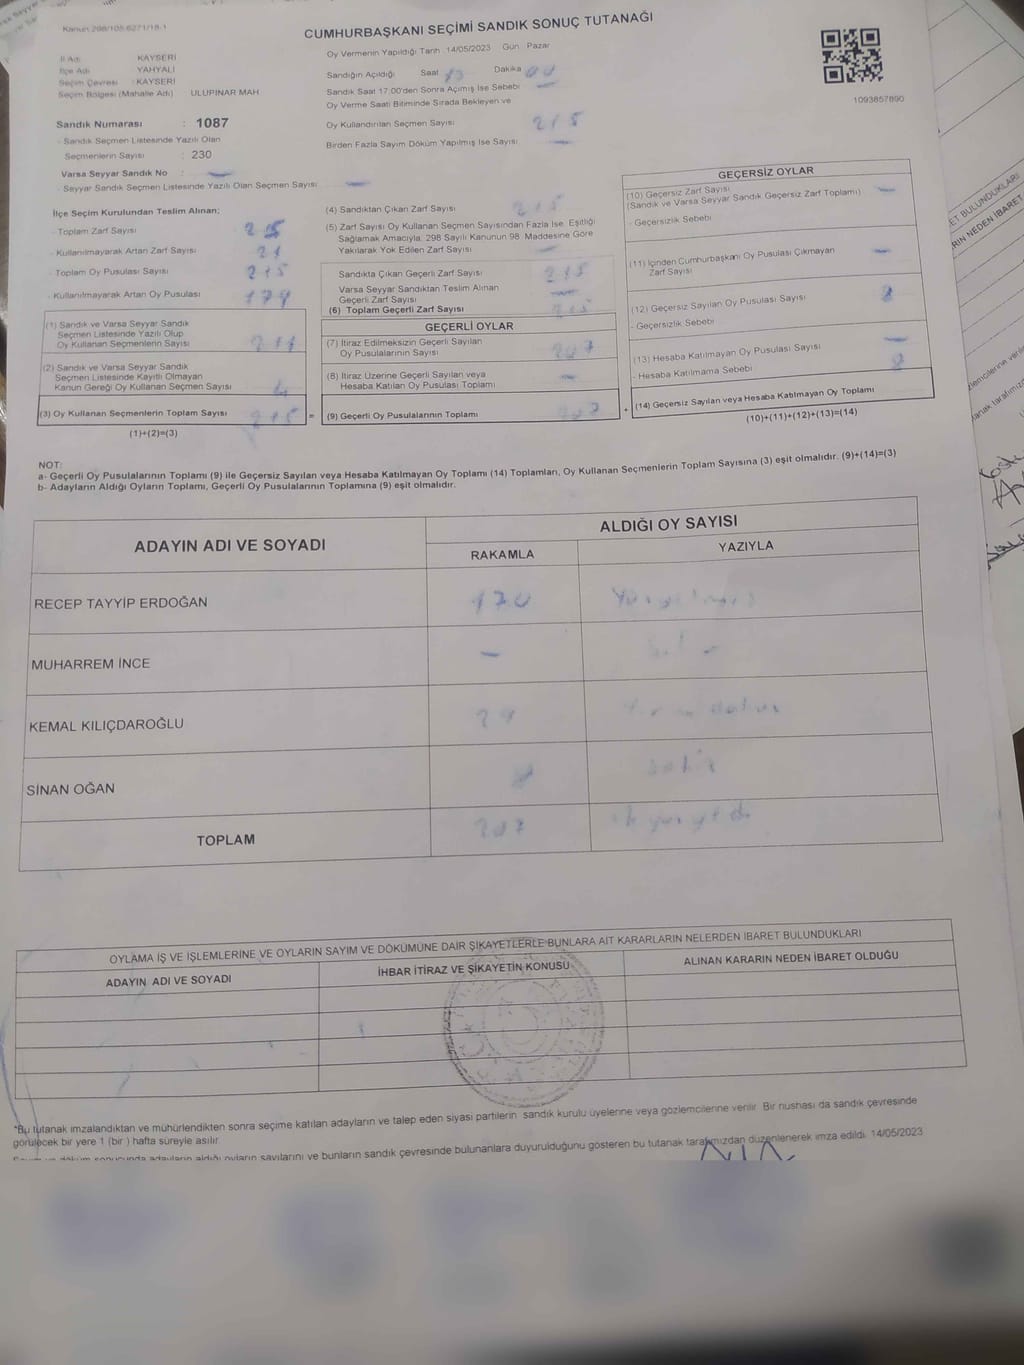 Kanun:298/105-6271/18-1
CUMHURBAŞKANI SEÇİMİ SANDIK SONUÇ TUTANAĞI
İl Adı KAYSERİ
İlçe Adı YAHYALI
Seçim Çevresi : KAYSERİ
Seçim Bölgesi (Mahalle Adı) : ULUPINAR MAH.
Sandık Numarası : 1087
- Sandık Seçmen Listesinde Yazılı Olan
Seçmenlerin Sayısı : 230
Varsa Seyyar Sandık No : -
- Seyyar Sandık Seçmen Listesinde Yazılı Olan Seçmen Sayısı : -
Oy Vermenin Yapıldığı Tarih : 14/05/2023 Gün : Pazar
Sandığın Açıldığı Saat Dakika 00
Sandık Saat 17:00'den Sonra Açılmış İse Sebebi -
Oy Verme Saati Bitiminde Sırada Bekleyen ve
Oy Kullandırılan Seçmen Sayısı 215
Birden Fazla Sayım Döküm Yapılmış İse Sayısı -
1093857890
İlçe Seçim Kurulundan Teslim Alınan;
- Toplam Zarf Sayısı
- Kullanılmayarak Artan Zarf Sayısı
- Toplam Oy Pusulası Sayısı 215
- Kullanılmayarak Artan Oy Pusulası
(1) Sandık ve Varsa Seyyar Sandık
Seçmen Listesinde Yazılı Olup
Oy Kullanan Seçmenlerin Sayısı 211
(2) Sandık ve Varsa Seyyar Sandık
Seçmen Listesinde Kayıtlı Olmayan
Kanun Gereği Oy Kullanan Seçmen Sayısı 4
(3) Oy Kullanan Seçmenlerin Toplam Sayısı 215 =
(1)+(2)=(3)
(4) Sandıktan Çıkan Zarf Sayısı 215
(5) Zarf Sayısı Oy Kullanan Seçmen Sayısından Fazla İse, Eşitliği
Sağlamak Amacıyla, 298 Sayılı Kanunun 98. Maddesine Göre
Yakılarak Yok Edilen Zarf Sayısı -
Sandıkta Çıkan Geçerli Zarf Sayısı 215
Varsa Seyyar Sandıktan Teslim Alınan
Geçerli Zarf Sayısı -
(6) Toplam Geçerli Zarf Sayısı 215
GEÇERLİ OYLAR
(7) İtiraz Edilmeksizin Geçerli Sayılan
Oy Pusulalarının Sayısı 207
(8) İtiraz Üzerine Geçerli Sayılan veya
Hesaba Katılan Oy Pusulası Toplamı -
(9) Geçerli Oy Pusulalarının Toplamı 207 +
GEÇERSİZ OYLAR
(10) Geçersiz Zarf Sayısı
(Sandık ve Varsa Seyyar Sandık Geçersiz Zarf Toplamı) -
- Geçersizlik Sebebi
(11) İçinden Cumhurbaşkanı Oy Pusulası Çıkmayan
Zarf Sayısı -
(12) Geçersiz Sayılan Oy Pusulası Sayısı 8
- Geçersizlik Sebebi
(13) Hesaba Katılmayan Oy Pusulası Sayısı -
- Hesaba Katılmama Sebebi
8
(14) Geçersiz Sayılan veya Hesaba Katılmayan Oy Toplamı
(10)+(11)+(12)+(13)=(14)
NOT:
a- Geçerli Oy Pusulalarının Toplamı (9) ile Geçersiz Sayılan veya Hesaba Katılmayan Oy Toplamı (14) Toplamları, Oy Kullanan Seçmenlerin Toplam Sayısına (3) eşit olmalıdır. (9)+(14)=(3)
b- Adayların Aldığı Oyların Toplamı, Geçerli Oy Pusulalarının Toplamına (9) eşit olmalıdır.
ADAYIN ADI VE SOYADI
ALDIĞI OY SAYISI
RAKAMLA YAZIYLA
RECEP TAYYİP ERDOĞAN 170
MUHARREM İNCE -
KEMAL KILIÇDAROĞLU 29
SİNAN OĞAN 8
TOPLAM 207
OYLAMA İŞ VE İŞLEMLERİNE VE OYLARIN SAYIM VE DÖKÜMÜNE DAİR ŞİKAYETLERLE BUNLARA AİT KARARLARIN NELERDEN İBARET BULUNDUKLARI
ADAYIN ADI VE SOYADI İHBAR İTİRAZ VE ŞİKAYETİN KONUSU ALINAN KARARIN NEDEN İBARET OLDUĞU
*Bu tutanak imzalandıktan ve mühürlendikten sonra seçime katılan adayların ve talep eden siyasi partilerin sandık kurulu üyelerine veya gözlemcilerine verilir. Bir nüshası da sandık çevresinde
görülecek bir yere 1 (bir ) hafta süreyle asılır.
Sayım ve döküm sonucunda adayların aldığı oyların sayılarını ve bunların sandık çevresinde bulunanlara duyurulduğunu gösteren bu tutanak tarafımızdan düzenlenerek imza edildi. 14/05/2023
ET BULUNDUKLARI
RIN NEDEN İBARET